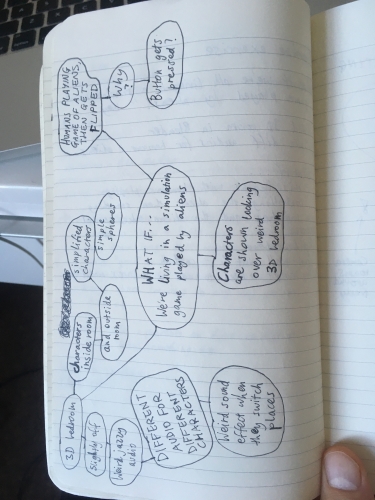 HUMANS PLAYING
GAME OF ALIENS,
THEN GETS
FLIPPED
Why
?
Button gets
pressed?
WHAT IF...
We're living in a simulation
game played by aliens
simplified
characters
simple
spheres
characters
inside room
and outside
room
3D bedroom
Slightly off
Weird jazzy
audio
DIFFERENT
AUDIO FOR
DIFFERENT
CHARACTERS
Weird sound
effect when
they switch
places
Characters
are shown looking
over weird
3D bedroom